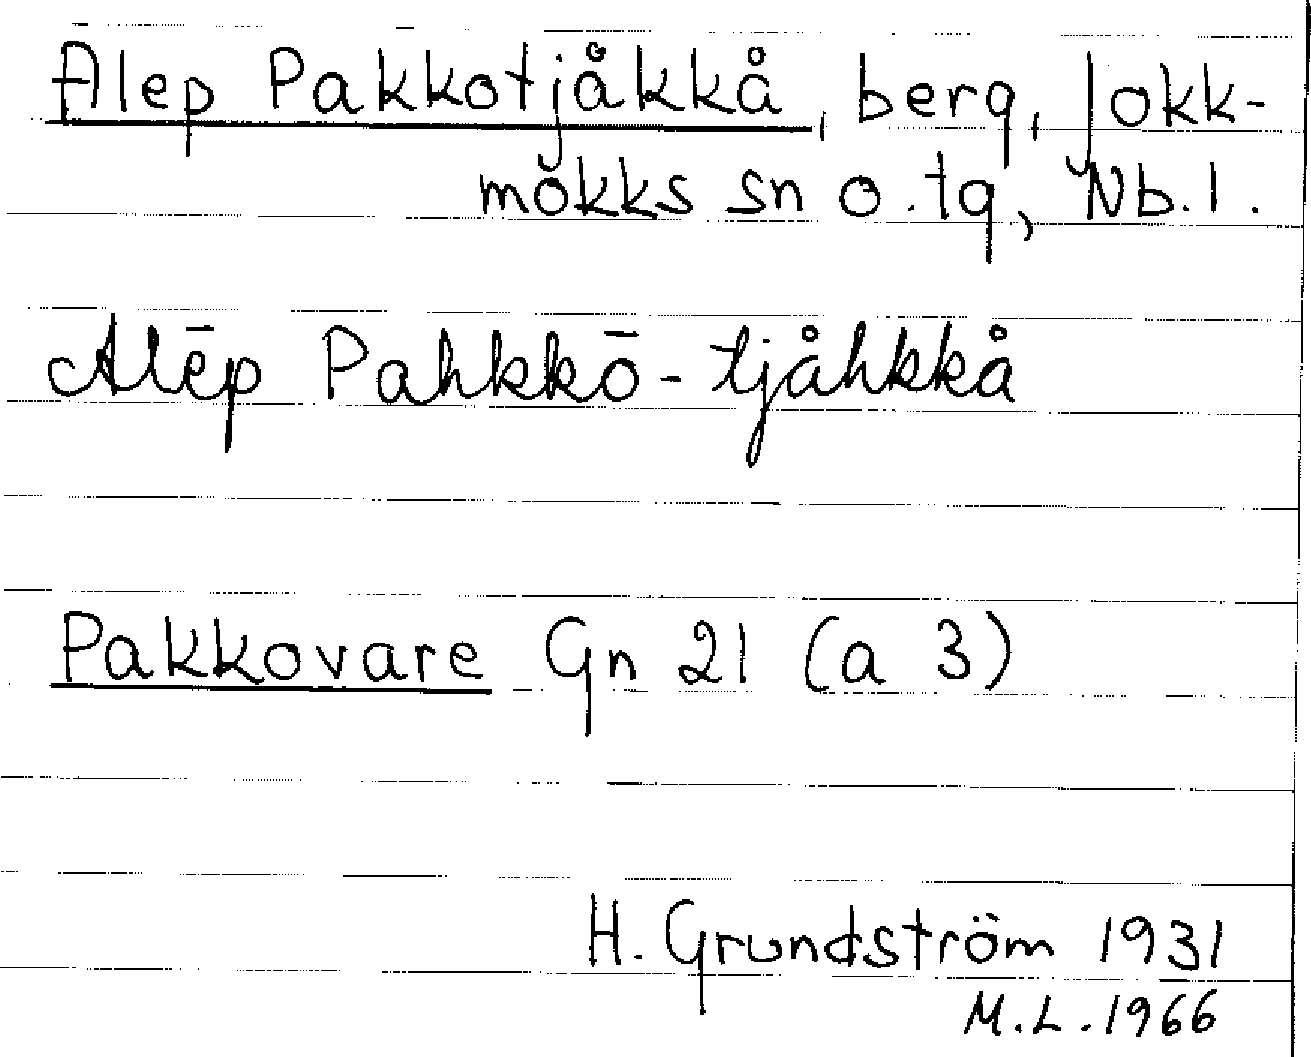 Alep Pakkotjåkkå, berg, Jokk-
mokks sn o. tg, Nb. l.
Alēp Pahkkō-tjåhkkå
Pakkovare Gn 21 (a 3)
H. Grundström 1931
M.L. 1966